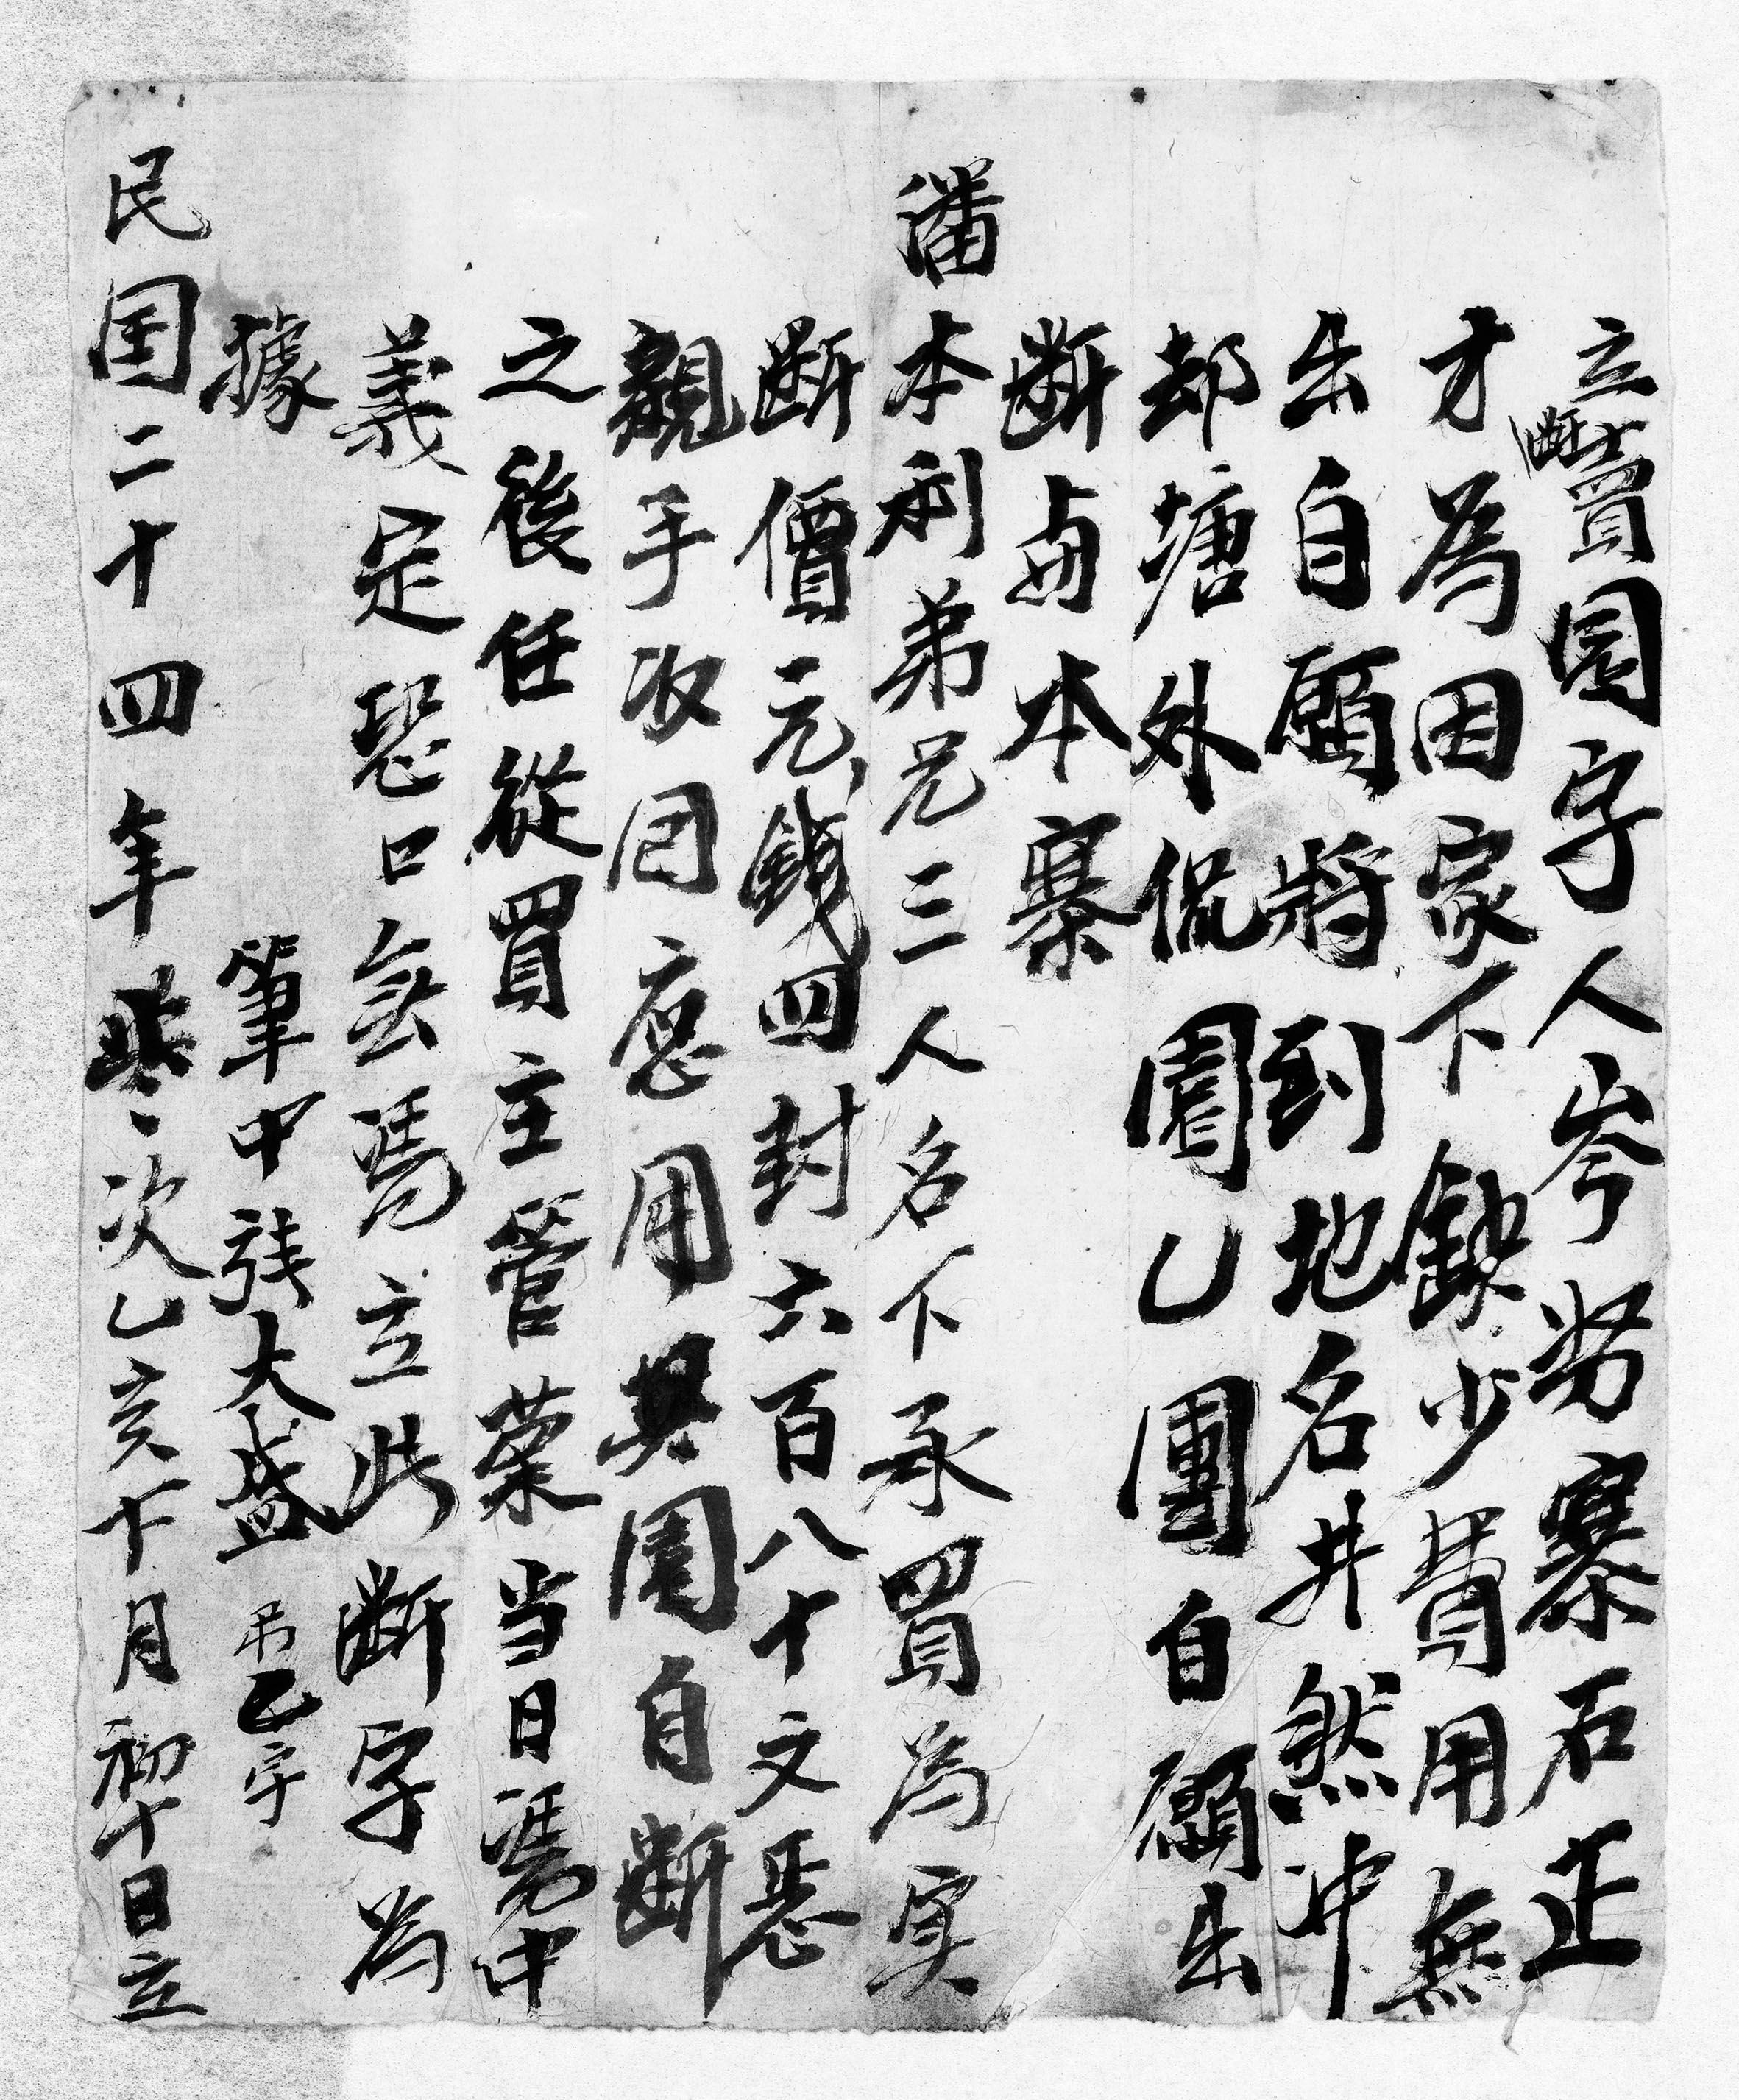 立斷賣園字人岑努寨石正
才為因家下缺少費用無
出自願將到地名井然冲
却塘外侃園乚團自願出
斷卣本寨
潘本利弟兄三人名下承買為実
断價元錢四封六百八十文恁
親手收回應用其園自斷
之後任從買主管業当日馮中
義定恐口無馮立此斷字為
據
筆中錢大盛 吊乙字
民国二十四年歲次乙亥十月初十日立